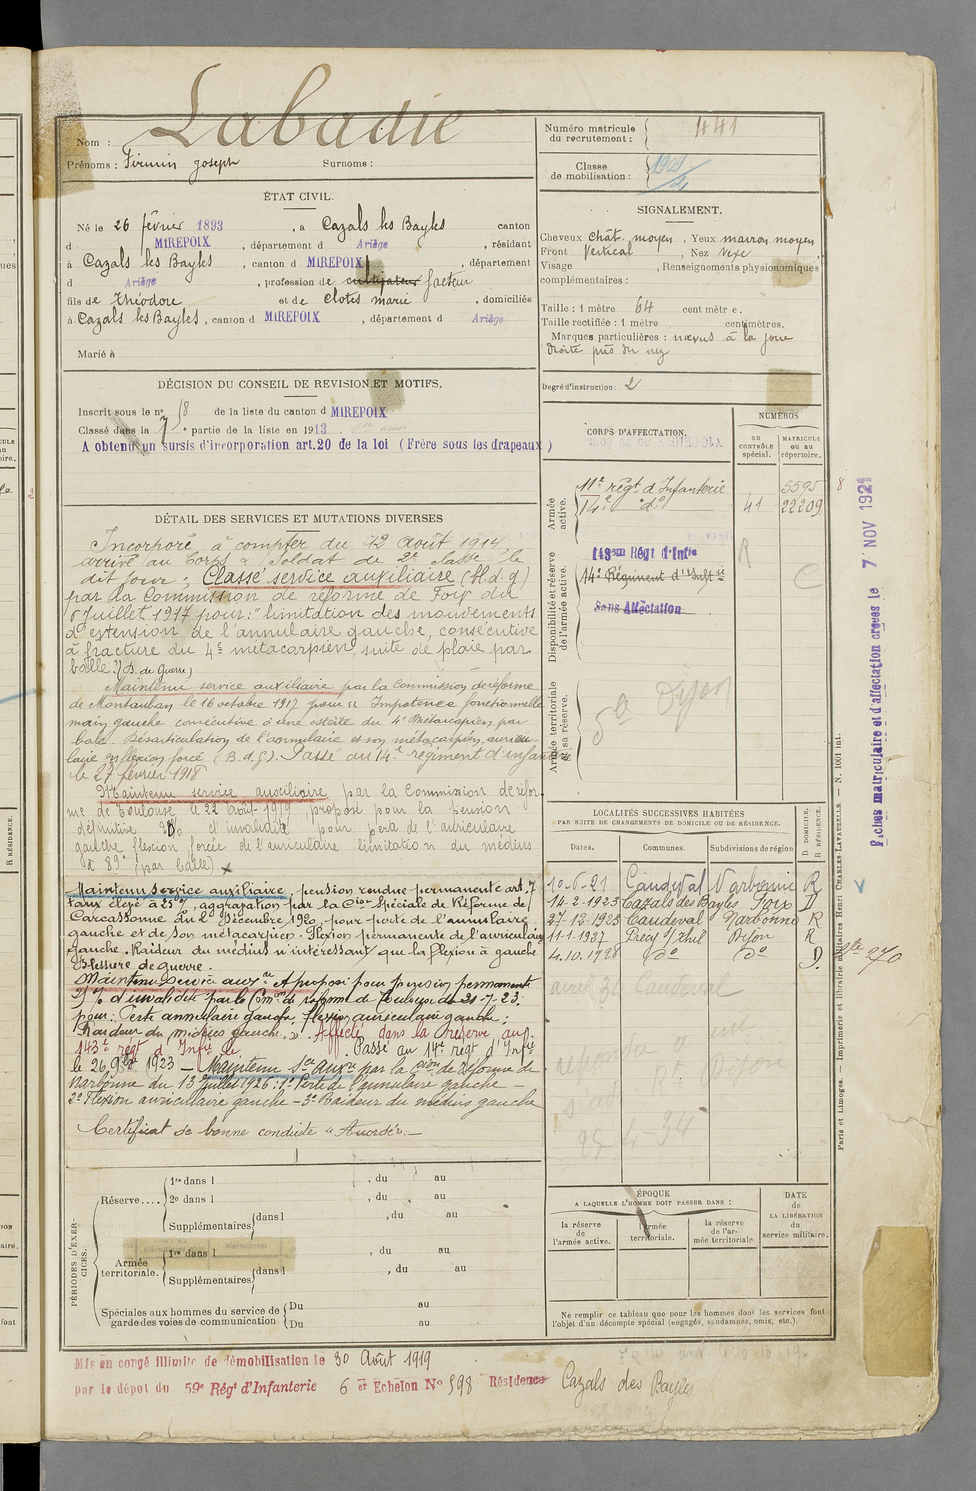 Nom : Labadie
Prénoms : Firmin joseph Surnoms :
Numéro matricule du recrutement : 441
Classe de mobilisation :
ÉTAT CIVIL.
Né le 26 février 1893, à Cazals les Bayles canton
d MIREPOIX, département d Ariège, résidant
à Cazals les Bayles, canton d MIREPOIX, département
d Ariège, profession de cultivateur facteur
fils de théodore et de Clotes marie, domiciliés
à Cazals les Bayles, canton d MIREPOIX, département d Ariège
Marié à
SIGNALEMENT.
Cheveux chât. moyen, Yeux marron moyen
Front Vertical, Nez
Visage , Renseignements physionomiques
complémentaires :
Taille : 1 mètre 64 centimètre.
Taille rectifiée : 1 mètre centimètres.
Marques particulières : nœvus à la joue
droite près du nez
Degré d'instruction : 2
DÉCISION DU CONSEIL DE REVISION ET MOTIFS.
Inscrit sous le n° 18 de la liste du canton d MIREPOIX
Classé dans la 7e partie de la liste en 1913
A obtenu un sursis d'incorporation art.20 de la loi (Frère sous les drapeaux)
DÉTAIL DES SERVICES ET MUTATIONS DIVERSES
Incorporé à compter du 12 août 1914,
arrivé au Corps & Soldat de 2e classe le
dit jour. Classé service auxiliaire (bl. d. g)
par la Commission de réforme de Foix du
6 juillet 1917 pour : "limitation des mouvements
d'extension de l'annulaire gauche, consécutive
à fracture du 4e métacarpien, suite de plaie par
balle". (B. de Guerre)
Maintenu service auxiliaire par la Commission de réforme
de Montauban le 16 octobre 1917 pour "Impotence fonctionnelle
main gauche consécutive à une ostéite du 4e Métacarpien par
balle. Désarticulation de l'annulaire et son métacarpien, auricu-
laire en flexion forcé (B.d.G). Passé au 14e régiment d'infanterie
le 27 février 1918
Maintenu service auxiliaire par la Commission de réfor-
me de Toulouse le 22 août 1919, proposé pour la pension
définitive 20% d'invalidité pour perte de l'auriculaire
gauche flexion forcée de l'auriculaire limitation du médius
à 89° (par balle)
Maintenu service auxiliaire, pension rendue permanente art. 7
taux élevé à 25%, aggravation par la Cion Spéciale de Réforme de
Carcassonne du 2 Décembre 1920, pour perte de l'annulaire
gauche et de son métacarpien. Flexion permanente de l'auriculaire
gauche. Raideur du médius n'intéressant que la flexion à gauche
Blessure de guerre.
Maintenu service auxre A proposé pour pension permanente
25% d'invalidité par la Comon de réforme de Toulouse du 31-7-23;
pour : Perte annulaire gauche, flexion auriculaire gauche;
Raideur du médius gauche. Affecté dans la réserve au
143e régt d'Infie le . Passé au 14e régt d'Infie
le 26 9bre 1923 – Maintenu Sce auxre par la Cion de réforme de
Narbonne du 13 juillet 1926 : 1° Perte de l'annulaire gauche –
2° Flexion auriculaire gauche – 3° Raideur du médius gauche
Certificat de bonne conduite "Accordé". –
CORPS D'AFFECTATION.
NUMÉROS
AU CONTRÔLE spécial.
MATRICULE OU AU répertoire.
Armée active.
11e régt d'Infanterie 5595
14e do 41 22209
Disponibilité et réserve de l'armée active.
143eme Régt d'Infie R
14e Régiment d'Inftie
Sans Affectation
Armée territoriale et sa réserve.
Dijon
LOCALITÉS SUCCESSIVES HABITÉES
PAR SUITE DE CHANGEMENTS DE DOMICILE OU DE RÉSIDENCE.
Dates. Communes. Subdivisions de région D DOMICILE. R RÉSIDENCE.
10-6-21 Caudeval Narbonne R
14-2-1923 Cazals des Bayles Foix D
27-12-1923 Caudeval Narbonne R
11-1-1927 Précy s/ Thil Dijon R
4.10.1928 do do D.
avril 31 Caudeval
25 4-34
PÉRIODES D'EXERCICES.
Réserve.... 1re dans l , du au
2e dans l , du au
Supplémentaires dans l , du au
Armée territoriale. 1re dans l , du au
Supplémentaires dans l , du au
Spéciales aux hommes du service de garde des voies de communication Du au
Du au
ÉPOQUE
A LAQUELLE L'HOMME DOIT PASSER DANS :
la réserve de l'armée active.
l'armée territoriale.
la réserve de l'armée territoriale
DATE de LA LIBÉRATION du service militaire.
Ne remplir ce tableau que pour les hommes dont les services font
l'objet d'un décompte spécial (engagés, condamnés, omis, etc.).
Mis en congé illimité de démobilisation le 30 Août 1919
par le dépot du 59e Régt d'Infanterie 6 er Echelon No 598 Résidence Cazals des Bayles
Fiches matriculaire et d'affectation créées le 7 NOV 1921
Paris et Limoges. — Imprimerie et librairie militaires Henri CHARLES-LAVAUZELLE — N. 1001 int.